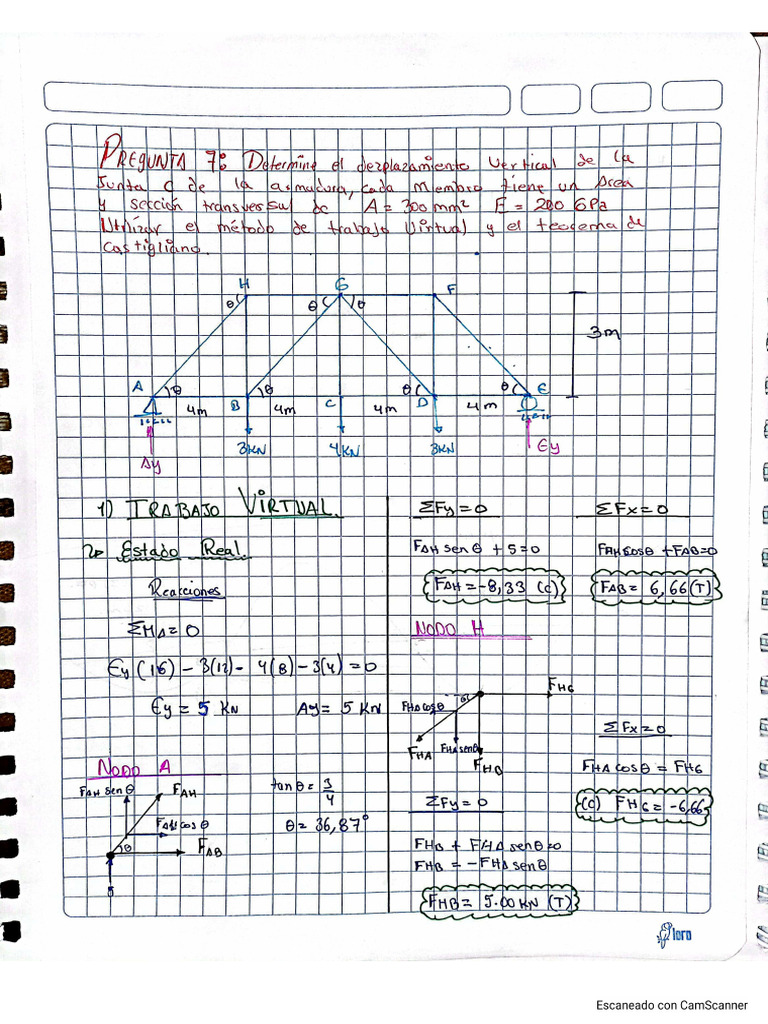 PREGUNTA 7: Determine el dezplazamiento Vertical de la
Junta C de la armadura, cada Miembro tiene un Area
y sección transversal de A = 300 mm² E = 200 GPa
Utilizar el método de trabajo Virtual y el teorema de
Castigliano.
H G F
θ θ θ
3m
A θ θ θ θ E
4m B 4m C 4m D 4m
3KN 4KN 3KN
Ay Ey
1) TRABAJO VIRTUAL.
Estado Real.
Reacciones
ΣMA = 0
Ey(16) - 3(12) - 4(8) - 3(4) = 0
Ey = 5 KN Ay = 5 KN
NODO A
FAH sen θ FAH
FAH cos θ
θ FAB
5
tan θ = 3/4
θ = 36,87°
ΣFy = 0 ΣFx = 0
FAH sen θ + 5 = 0 FAH cos θ + FAB = 0
FAH = -8,33 (C) FAB = 6,66 (T)
NODO H
θ FHG
FHA cos θ
FHA FHA sen θ
FHB
ΣFx = 0
FHA cos θ = FHG
(C) FHG = -6,66
ΣFy = 0
FHB + FHA sen θ = 0
FHB = - FHA sen θ
FHB = 5.00 KN (T)
loro
Escaneado con CamScanner